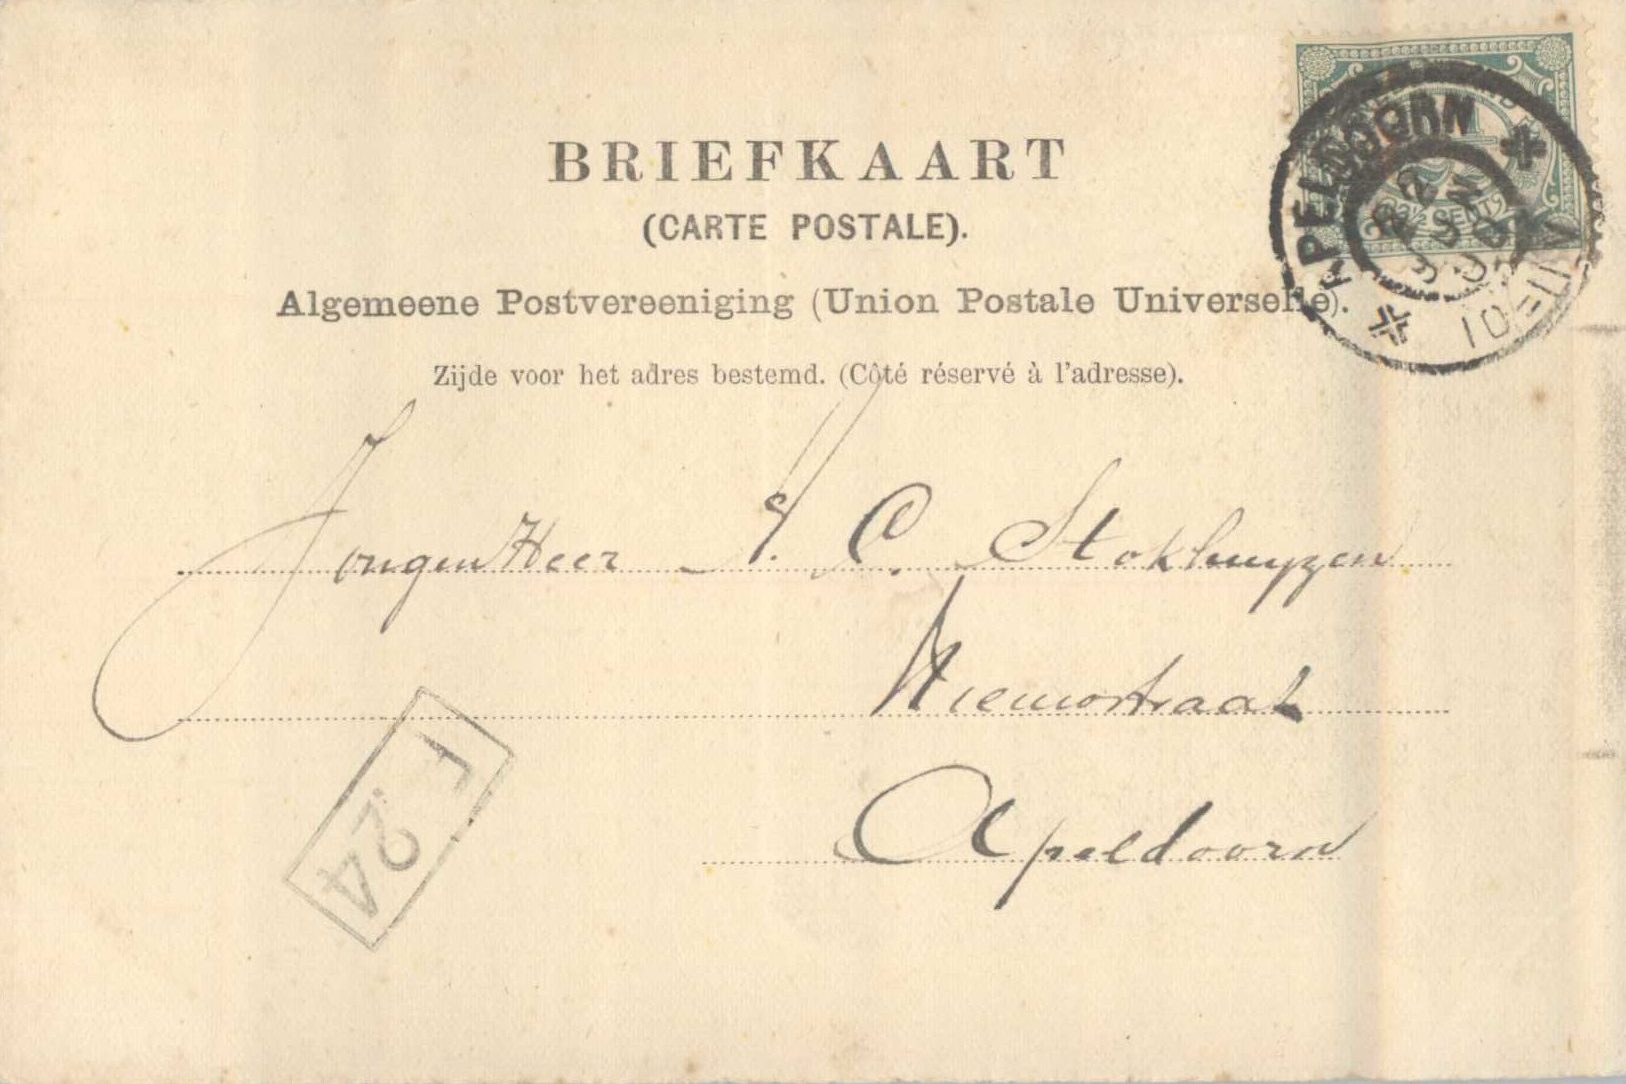 BRIEFKAART
(CARTE POSTALE).
Algemeene Postvereeniging (Union Postale Universelle).
Zijde voor het adres bestemd. (Côté réservé à l'adresse).
JongenHeer C. Stokhuyzen
Nieuwstraat
Apeldoorn
APELDOORN
10-11 V
2½ CENT
F 24